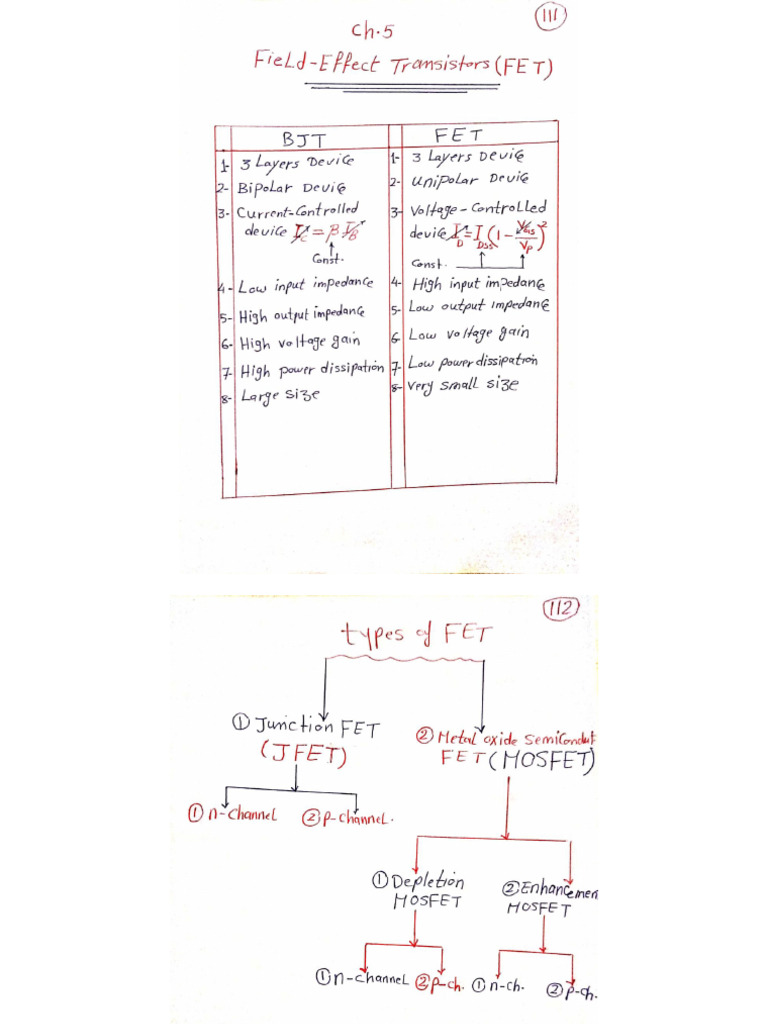 111
Ch.5
Field-Effect Transistors (FET)
BJT
1- 3 Layers Device
2- Bipolar Device
3- Current-Controlled
device I_C = β I_B
Const.
4- Low input impedance
5- High output impedance
6- High voltage gain
7- High power dissipation
8- Large size
FET
1- 3 Layers Device
2- Unipolar Device
3- Voltage-Controlled
device I_D = I_DSS (1 - V_GS/V_P)^2
Const.
4- High input impedance
5- Low output impedance
6- Low voltage gain
7- Low power dissipation
8- Very small size
112
types of FET
① Junction FET
(JFET)
① n-channel ② p-channel.
② Metal oxide Semicondut
FET (MOSFET)
① Depletion
MOSFET
② Enhancemen
MOSFET
① n-channel ② p-ch. ① n-ch. ② p-ch.